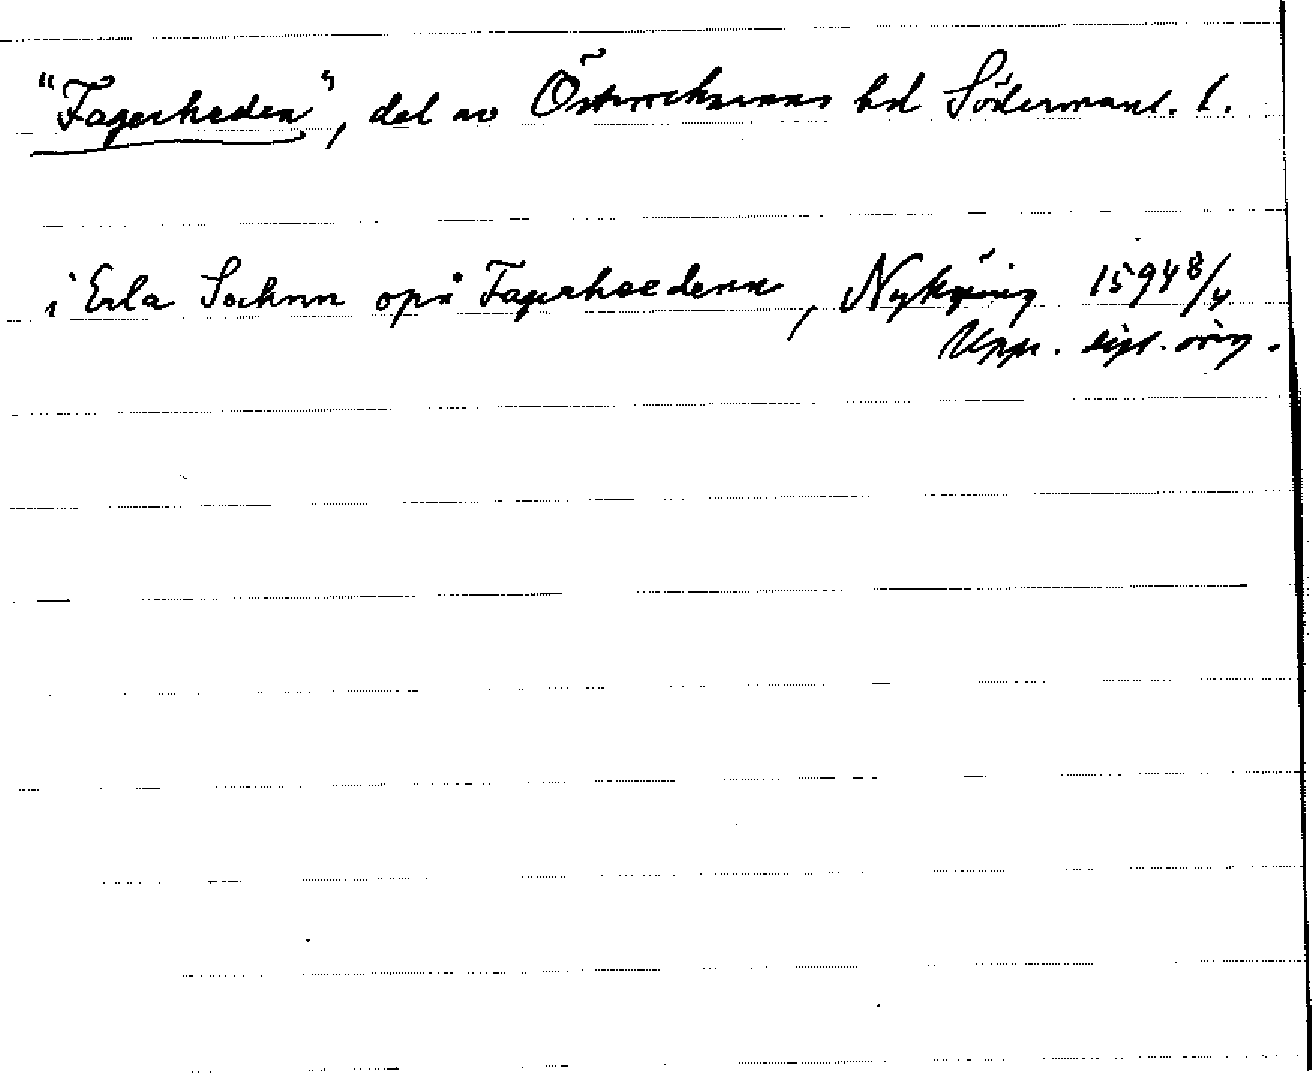 "Fagerheden", del av Österrekarnes hd Södermanl. l.
i Erla Sochnn opå Fagerhoedenn, Nyköping 1594 8/4
Upps. dipl. orig.